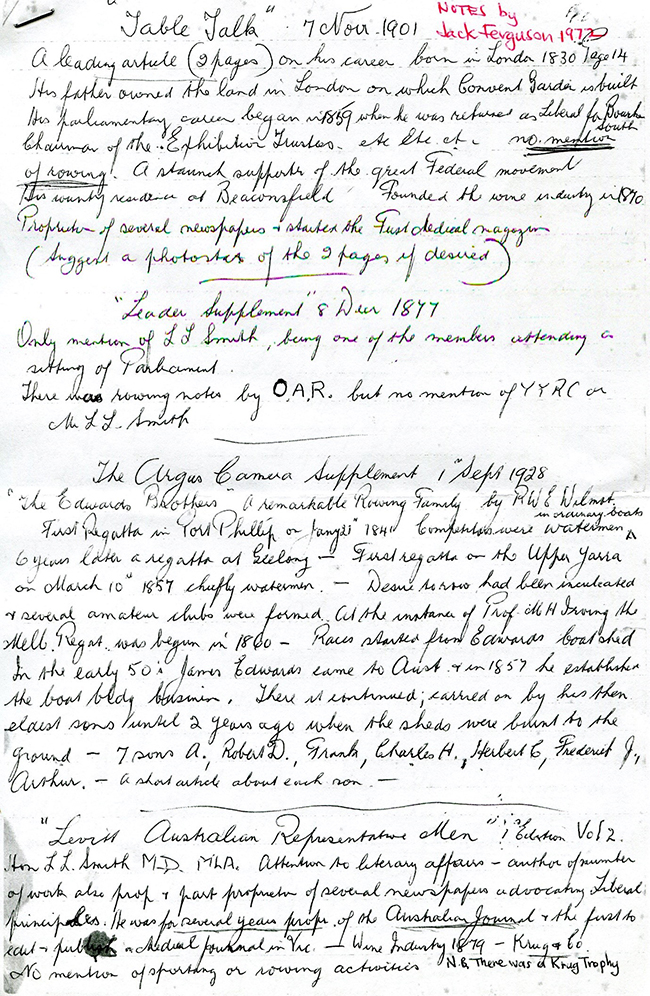 "Table Talk" 7 Nov. 1901
NOTES by
Jack Ferguson 1977
A leading article (2 pages) on his career born in London 1830 (age 14
His father owned the land in London on which Convent Garden is built
His parliamentary career began in 1859 when he was returned as Liberal for Bourke South
Chairman of the Exhibition Trustees. etc etc. et. no mention
of rowing. A staunch supporter of the great Federal movement
His country residence at Beaconsfield Founded the wine industry in 1870
Proprietor of several newspapers + started the First Medical magazine
(Suggest a photostat of the 2 pages if desired)
"Leader Supplement" 8 Decr 1877
Only mention of L L Smith, being one of the members attending a
sitting of Parliament.
There was rowing notes by O.A.R. but no mention of YYRC or
Mr L L Smith
The Argus Camera Supplement 1st Sept 1928
"The Edwards Brothers" A remarkable Rowing Family by R W E Wilmot
First Regatta in Port Phillip on Jany 21st 1841 Competitors were watermen in ordinary boats
6 years later a regatta at Geelong — First regatta on the Upper Yarra
on March 10th 1857 chiefly watermen. — Desire to row had been inculcated
+ several amateur clubs were formed. At the instance of Prof. M H Irving the
Melb. Regat. was begun in 1860 — Races started from Edwards boatshed
In the early 50's James Edwards came to Aust. + in 1857 he established
the boat bldg business. There it continued; carried on by his then
eldest sons until 2 years ago when the sheds were burnt to the
ground — 7 sons A., Robert D., Frank, Charles H., Herbert C, Frederick J.,
Arthur. — A short article about each son. —
"Levitt Australian Representative Men" 1st Edition Vol 2.
Hon L L. Smith M.D. MLA. Attention to literary affairs — author of number
of work also prop + part proprietor of several newspapers advocating Liberal
principles. He was for several years propr. of the Australian Journal + the first to
edit + publish a Medical Journal in Vic. — Wine Industry 1879 — Krug & Co.
No mention of sporting or rowing activities N.B. There was a Krug Trophy